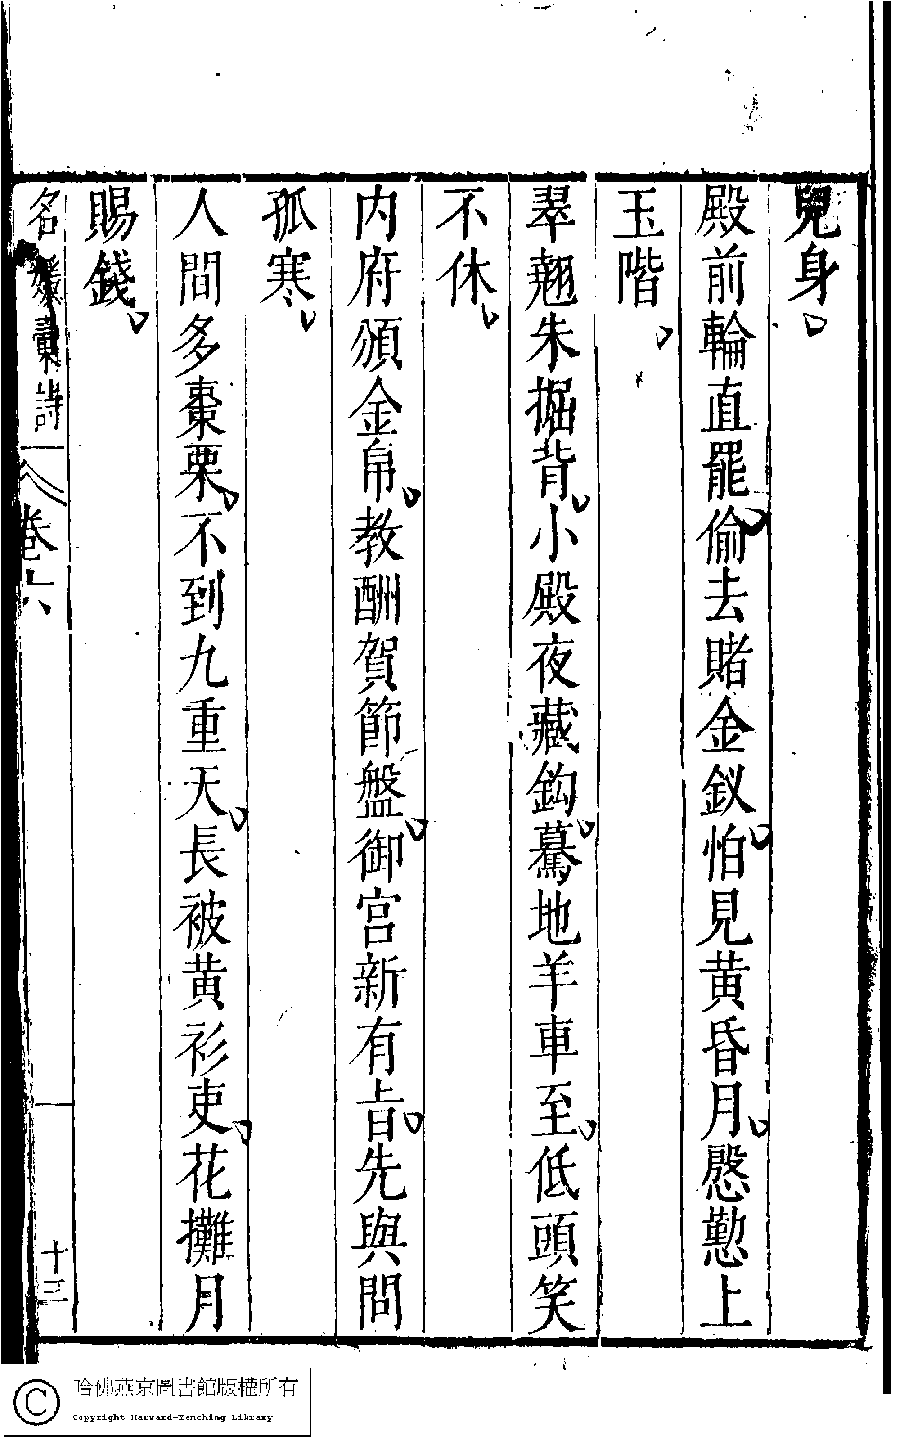 兒身
殿前輪直罷偷去賭金釵怕見黃昏月慇懃上
玉階
翠翹朱掘背小殿夜藏鈎驀地羊車至低頭笑
不休
内府頒金帛教酬賀節盤御宫新有㫖先與問
孤寒
人間多棗栗不到九重天長被黃衫吏花攤月
賜錢
名媛彙詩 卷六 十三
哈佛燕京圖書館版權所有
Copyright Harvard-Yenching Library